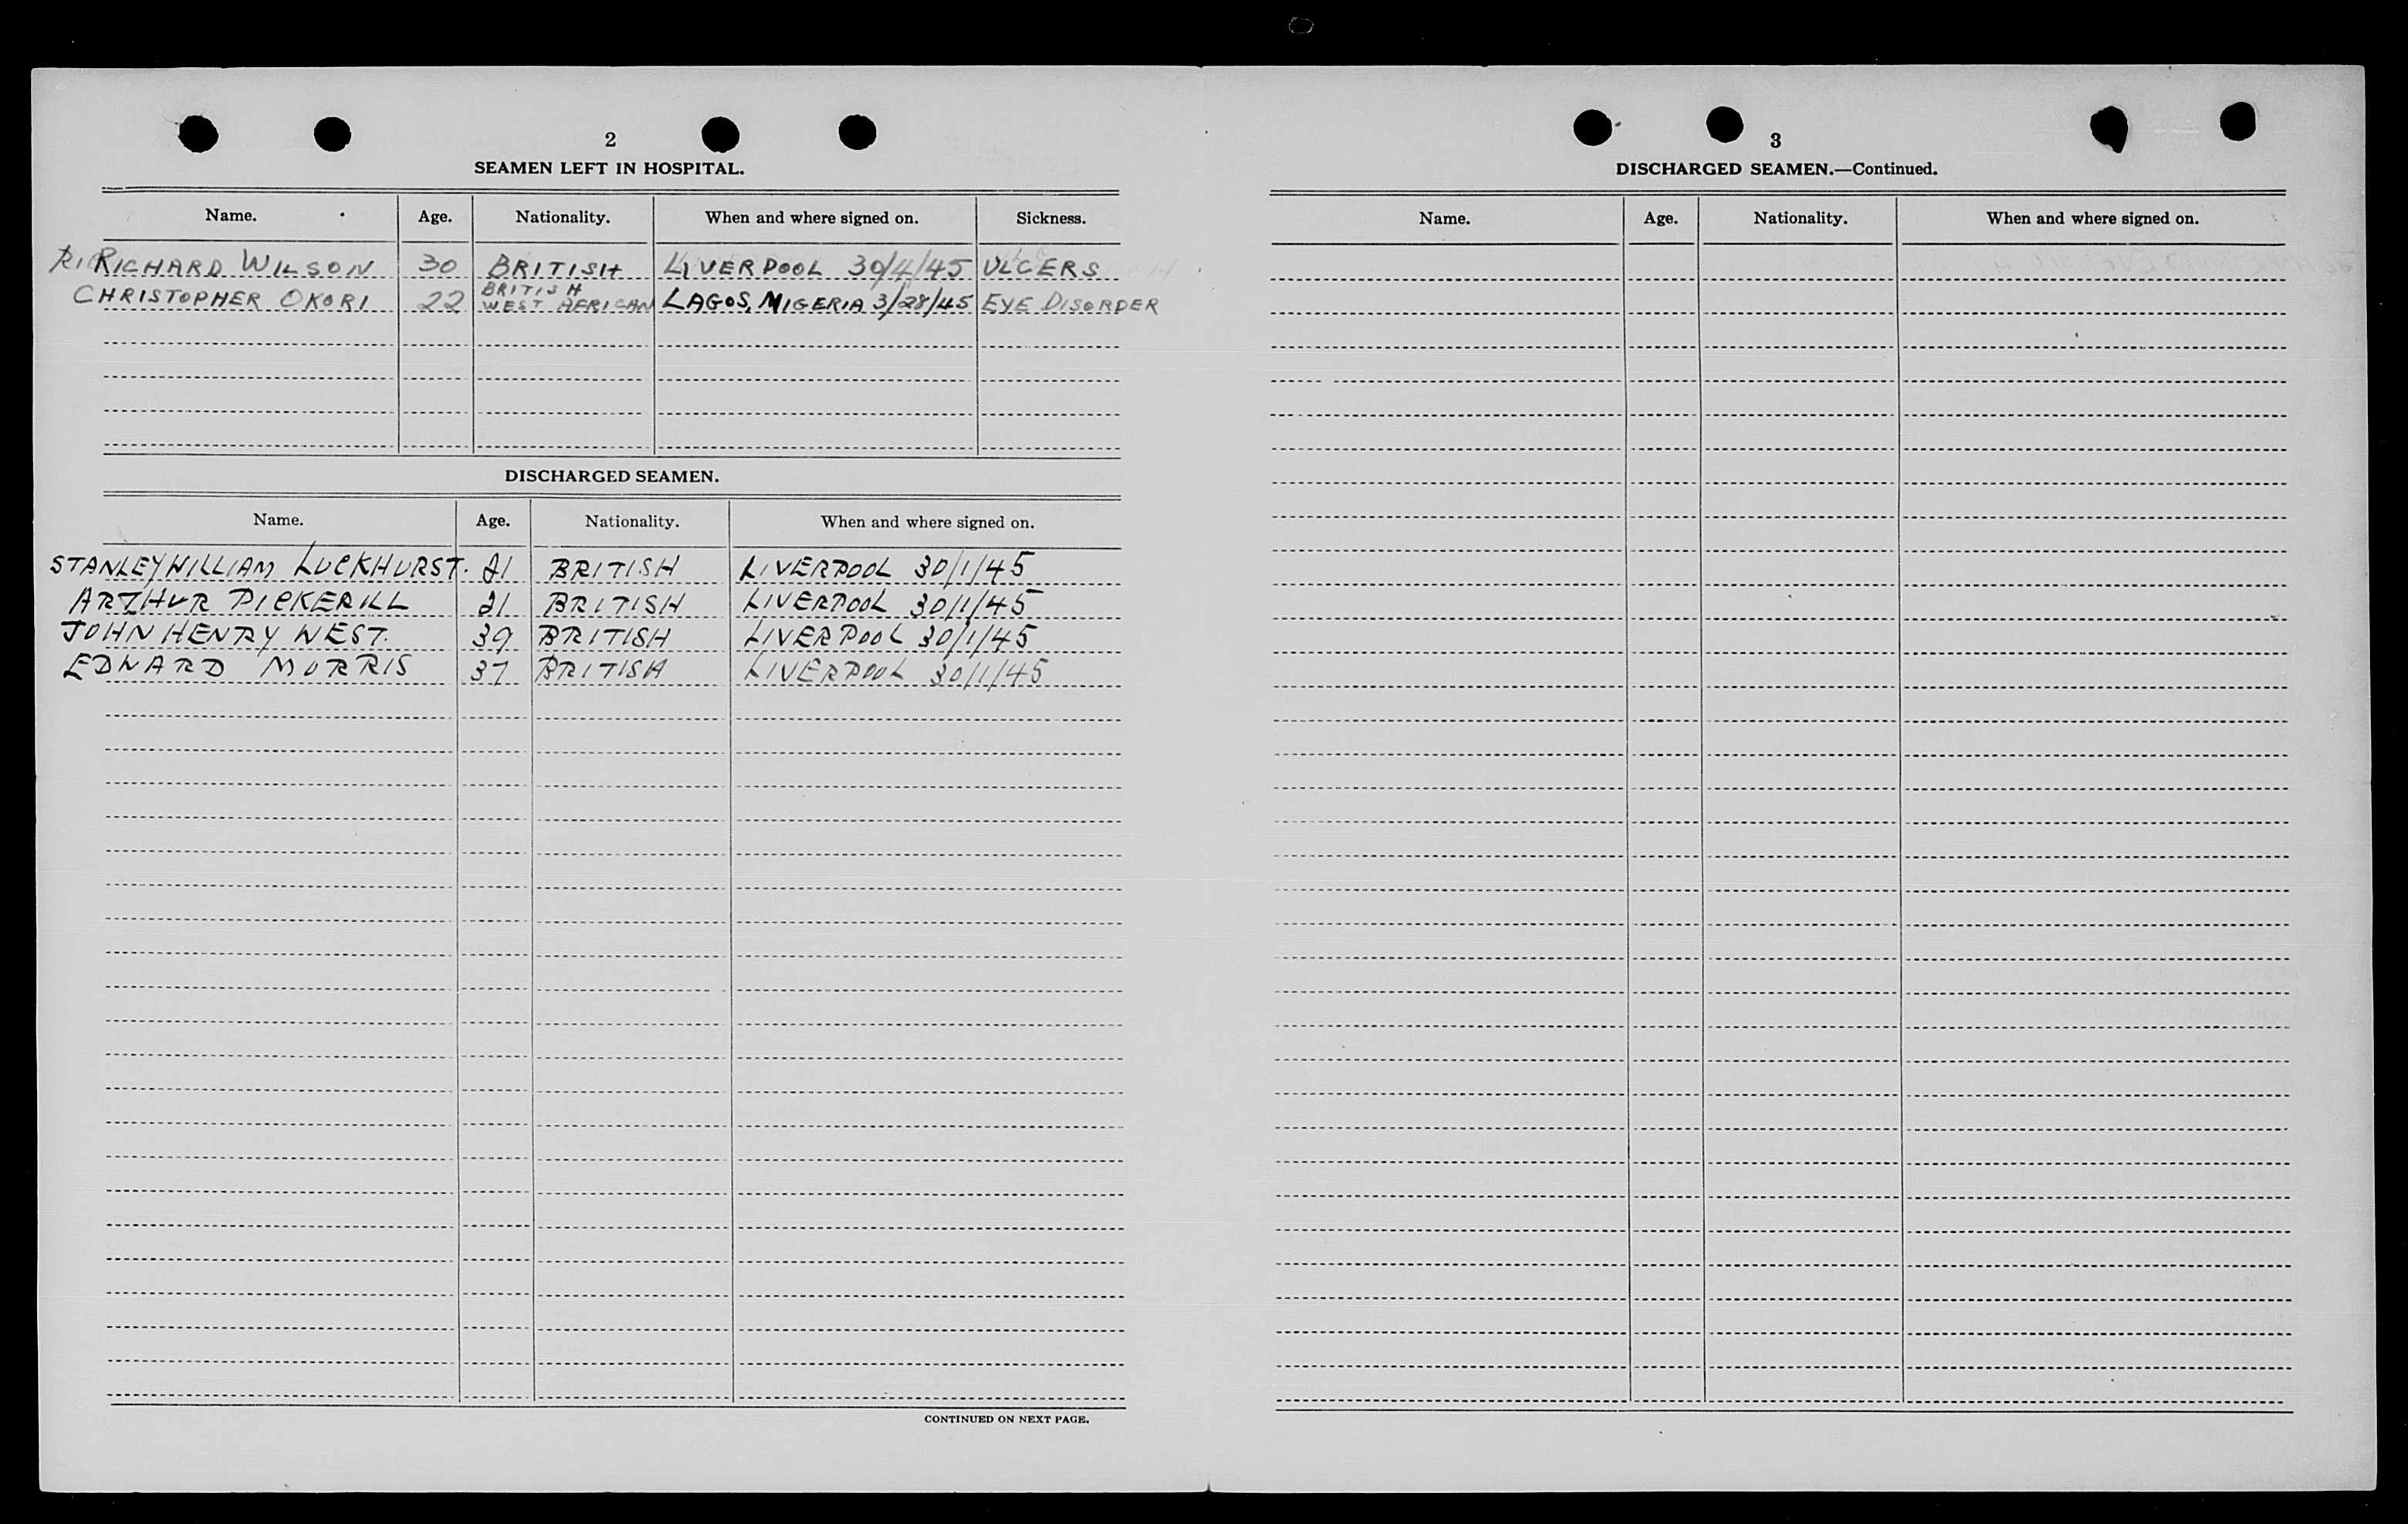 2
SEAMEN LEFT IN HOSPITAL.
Name. Age. Nationality. When and where signed on. Sickness.
RICHARD WILSON 30 BRITISH LIVERPOOL 30/4/45 ULCERS
CHRISTOPHER OKORI 22 BRITISH WEST AFRICAN LAGOS, NIGERIA 3/28/45 EYE DISORDER
DISCHARGED SEAMEN.
Name. Age. Nationality. When and where signed on.
STANLEY WILLIAM LUCKHURST. 21 BRITISH LIVERPOOL 30/1/45
ARTHUR PICKERILL 21 BRITISH LIVERPOOL 30/1/45
JOHN HENRY WEST. 39 BRITISH LIVERPOOL 30/1/45
EDWARD MORRIS 37 BRITISH LIVERPOOL 30/1/45
CONTINUED ON NEXT PAGE.
3
DISCHARGED SEAMEN.—Continued.
Name. Age. Nationality. When and where signed on.